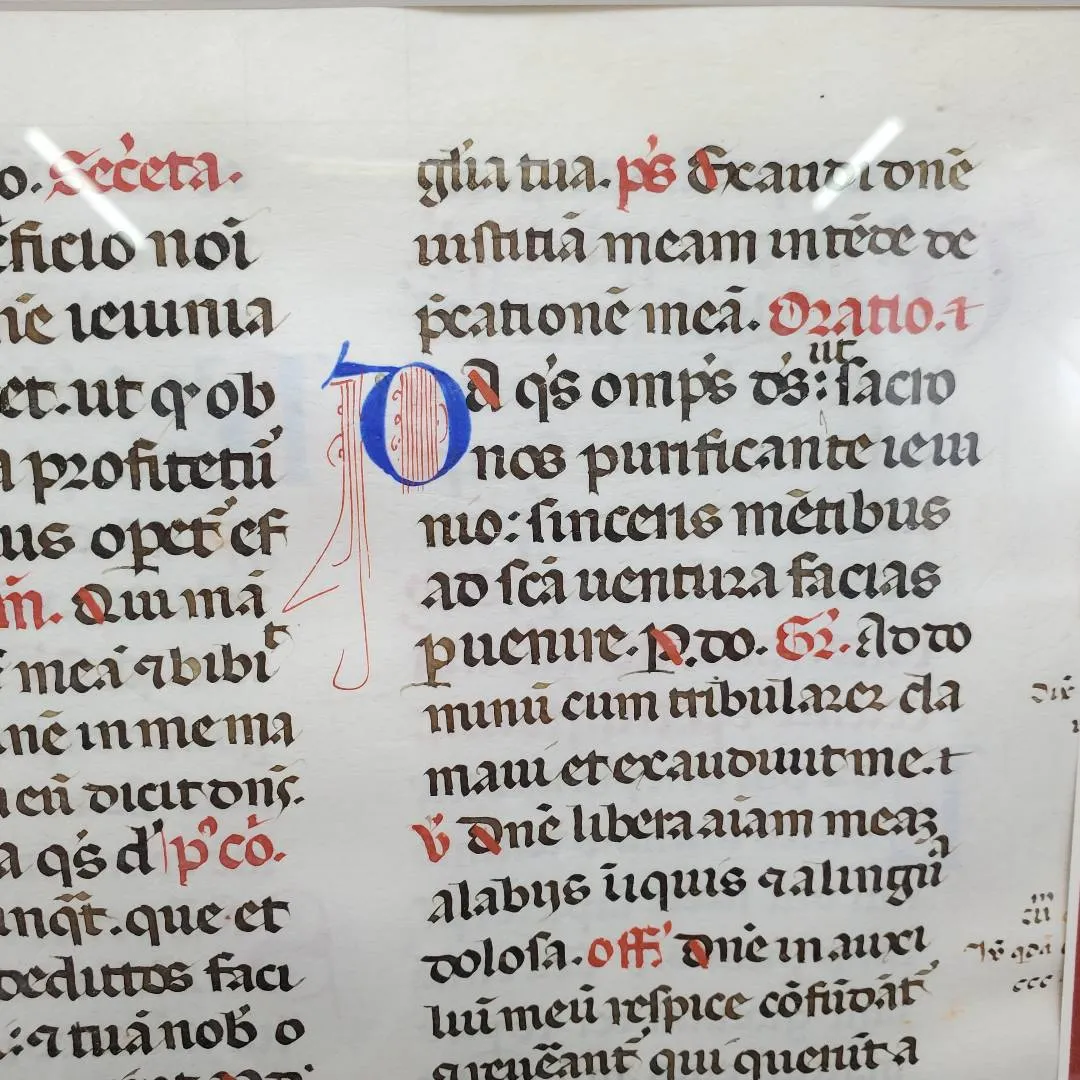 o. Sec̄eta.
ficio noī
nīē ieiunia
et. ut qͥ ob
a profitetū
us opet̄ ef
m̄. Qui mā
meā ⁊ bibit
nē in me ma
cū dicit dn̄s.
a q̄s d̄ p̄ cō.
que et
dedittos faci
: ⁊ tuā nob̄ o
gl̄ia tua. p̄s Exaudi dom̄e
iustitiā meam intēde de
p̄cationē meā. Oratio. ⁊
Da q̄s omp̄s d̄s: ut sacro
nos purificante ieiu
nio: sinceris mētibus
ad sc̄a uentura facias
puenire. P. do. Gr̄. Ad do
minū cum tribularer cla
maui et exaudiuit me. ⁊
V̄ Dn̄e libera aīam meaꝫ
a labijs īiquis ⁊ a lingua
dolosa. off̄ Dn̄e in auxi
liū meū respice cōfūdāt̄
⁊ reueāant̄ qui querūt a